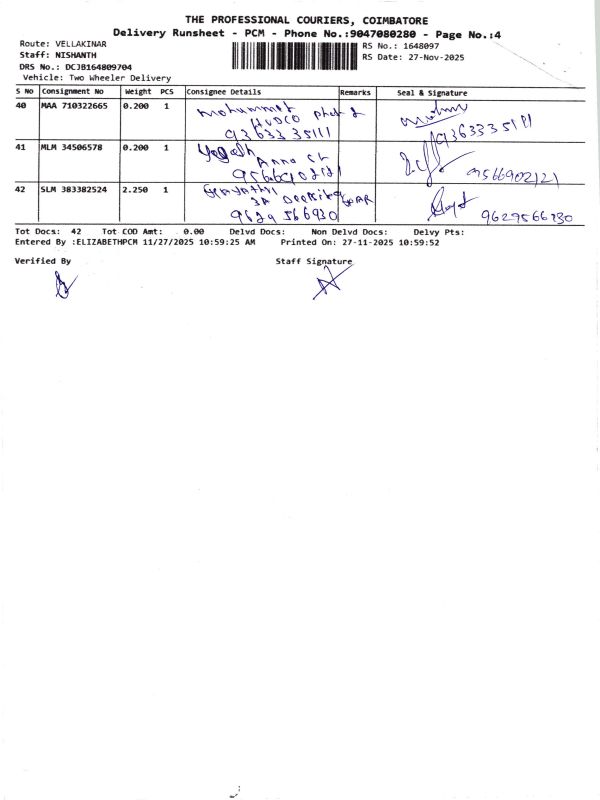 THE PROFESSIONAL COURIERS, COIMBATORE
Delivery Runsheet - PCM - Phone No.:9047080280 - Page No.:4
Route: VELLAKINAR
RS No.: 1648097
Staff: NISHANTH
RS Date: 27-Nov-2025
DRS No.: DCJB164809704
Vehicle: Two Wheeler Delivery
S No Consignment No Weight PCS Consignee Details Remarks Seal & Signature
40 MAA 710322665 0.200 1 mohummet
HUDCO
9363335111 9363335111
41 MLM 34506578 0.200 1 Yogesh
Anna
9566902121 9566902121
42 SLM 383382524 2.250 1 Gayathri
9629566930 9629566930
Tot Docs: 42 Tot COD Amt: 0.00 Delvd Docs: Non Delvd Docs: Delvy Pts:
Entered By :ELIZABETHPCM 11/27/2025 10:59:25 AM Printed On: 27-11-2025 10:59:52
Verified By Staff Signature